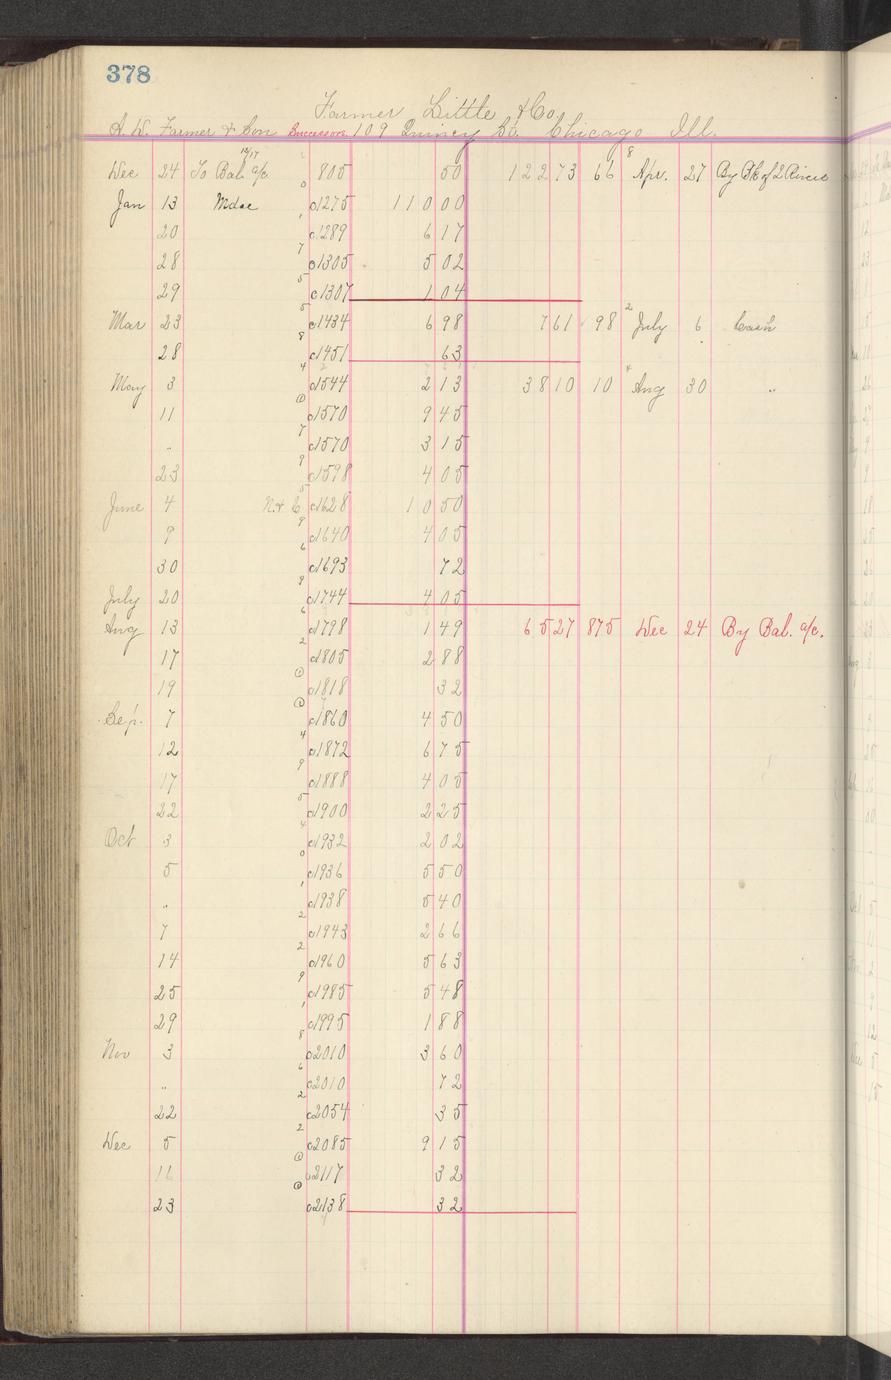 378
Farmer Little & Co.
A. W. Farmer & Son Successors 109 Quincy St. Chicago Ill.
Dec 24 To Bal. a/c 805 50 12273 66 8 Apr. 27 By
Jan 13 Mdse 0 c1275 110 00
20 1 c1289 6 17
28 7 c1305 5 02
29 5 c1307 1 04
Mar 23 5 c1434 6 98 761 98 2 July 6 Cash
28 8 c1451 63
May 3 4 c1544 2 13 3810 10 4 Aug 30 "
11 c1570 9 45
" 7 c1570 3 15
23 9 c1598 4 05
June 4 5 c1628 10 50
9 9 c1640 4 05
30 6 c1693 72
July 20 9 c1744 4 05
Aug 13 6 c1798 1 49 6527 875 Dec 24 By Bal. a/c.
17 2 c1805 2 88
19 c1818 32
Sep. 7 c1860 4 50
12 4 c1872 6 75
17 9 c1888 4 05
22 5 c1900 2 25
Oct 3 4 c1932 2 02
5 0 c1936 5 50
" 1 c1938 5 40
7 2 c1943 2 66
14 2 c1960 5 63
25 9 c1985 5 48
29 1 c1995 1 88
Nov 3 8 c2010 3 60
" 6 c2010 72
22 2 c2054 35
Dec 5 2 c2085 9 15
16 c2117 32
23 c2138 32